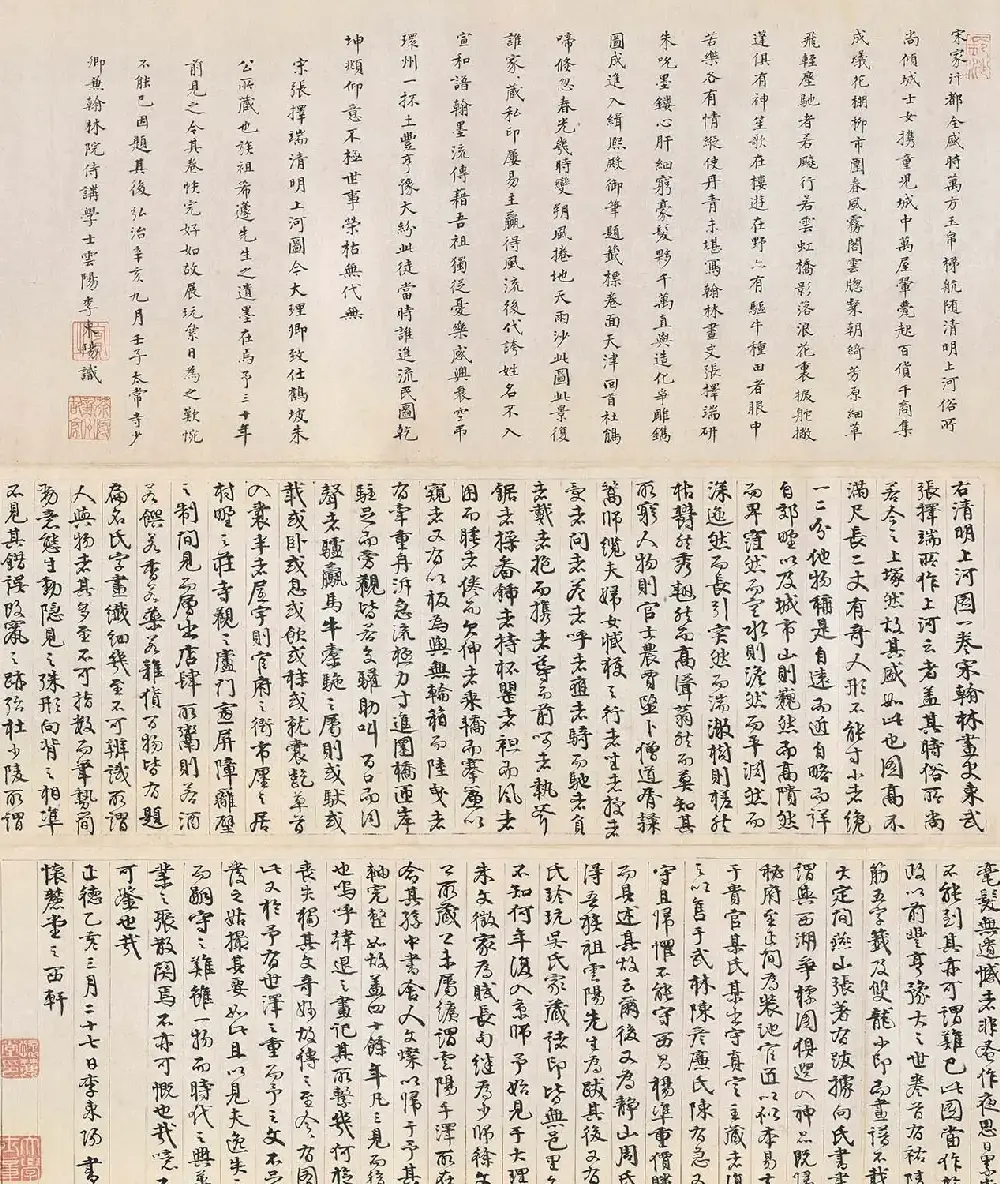 宋家汴都全盛時萬方玉帛梯航隨清明上河俗所
尚傾城士女携童兒城中萬屋翬甍起百貨千商集
成蟻花棚柳市圍春風霧閣雲牕粲朝綺芳原細草
飛輕塵馳者若飈行若雲虹橋影落浪花裏捩舵撇
蓬俱有神笙歌在樓遊在野亦有驅牛種田者眼中
苦樂各有情縱使丹青未堪寫翰林畫史張擇端研
朱吮墨鏤心肝細窮毫髮夥千萬直與造化爭雕鐫
圖成進入緝熙殿御筆題籤標卷面天津回首杜鵑
啼倏忽春光幾時變朔風捲地天雨沙此圖此景復
誰家家藏私印屢易主贏得風流後代誇姓名不入
宣和譜翰墨流傳藉吾祖獨從憂樂感興衰空弔
環州一抔土豐亨豫大紛此徒當時誰進流民圖乾
坤頫仰意不極世事榮枯無代無
宋張擇端清明上河圖今大理卿致仕鶴坡朱
公所藏也族祖希蘧先生之遺墨在焉予三十年
前見之今其卷帙完好如故展玩累日為之歎惋
不能已因題其後弘治辛亥九月壬子太常寺少
卿兼翰林院侍講學士雲陽李東陽識
右清明上河圖一卷宋翰林畫史東武
張擇端所作上河云者蓋其時俗所尚
若今之上塚然故其盛如此也圖高不
滿尺長二丈有奇人形不能寸小者纔
一二分他物稱是自遠而近自略而詳
自郊野以及城市山則巍然而高隤然
而卑窪然而空水則澹然而平淵然而
深迤然而長引突然而湍激樹則槎然
枯鬱然秀翹然而高聳蓊然而莫知其
所窮人物則官士農賈醫卜僧道胥隸
篙師纜夫婦女臧獲之行者坐者授者
受者問者答者呼者應者騎而馳者負
者戴者抱而携者導而前呵者執斧
鋸者操畚鍤者持杯罌者袒而風者
困而睡者倦而欠伸者乘轎而搴簾以
窺者又有以板為輿無輪箱而陸曳者
有牽重舟泝急流極力寸進圜橋匝岸
駐足而旁觀皆若交驩助叫百口而同
聲者驢騾馬牛橐駞之屬則或馱或
載或臥或息或飲或秣或就囊齕草首
入囊半者屋宇則官府之衙市廛之居
村野之莊寺觀之廬門窗屏障籬壁
之制間見而層出店肆所鬻則若酒
若饌若香若藥若雜貨百物皆有題
扁名氏字畫纖細幾至不可辨識所謂
人與物者其多至不可指數而筆勢簡
勁意態生動隱見之殊形向背之相準
不見其錯誤改竄之跡殆杜少陵所謂
毫髮無遺憾者非蚤作夜思日累
不能到其亦可謂難已此圖當作於
政以前豐亨豫大之世卷首有祐陵
筋五字籤及雙龍小印而畫譜不載
大定間燕山張著有跋據向氏書
謂與西湖爭標圖俱選入神品既
秘府至正間為裝池官匠以似本易
于貴官某氏某守真定主藏者復
之以售于武林陳彥廉氏陳有急又
守且歸懼不能守西昌楊準重價購
而具述其故云爾後又為靜山周氏
得吾族祖雲陽先生為跋其後又有
氏珍玩吳氏家藏諸印皆無邑里
不知何年復入京師予始見于大理
朱文徵家為賦長句繼為少師徐文
公所藏公未屬纊謂雲陽手澤所在
命其孫中書舍人文燦以歸于予其
軸完整如故蓋四十餘年凡三見而後
也嗚呼韓退之畫記其所繫幾何
喪失獨其文奇妙故傳之至今有圖
此又於予有世澤之重而予之文不足
發之姑撮其要如此且以見夫逸失
而嗣守之難雖一物而時代之興
業之張散關焉不亦可慨也哉噫
可鑒也哉
正德乙亥三月二十七日李東陽書
懷麓堂之西軒